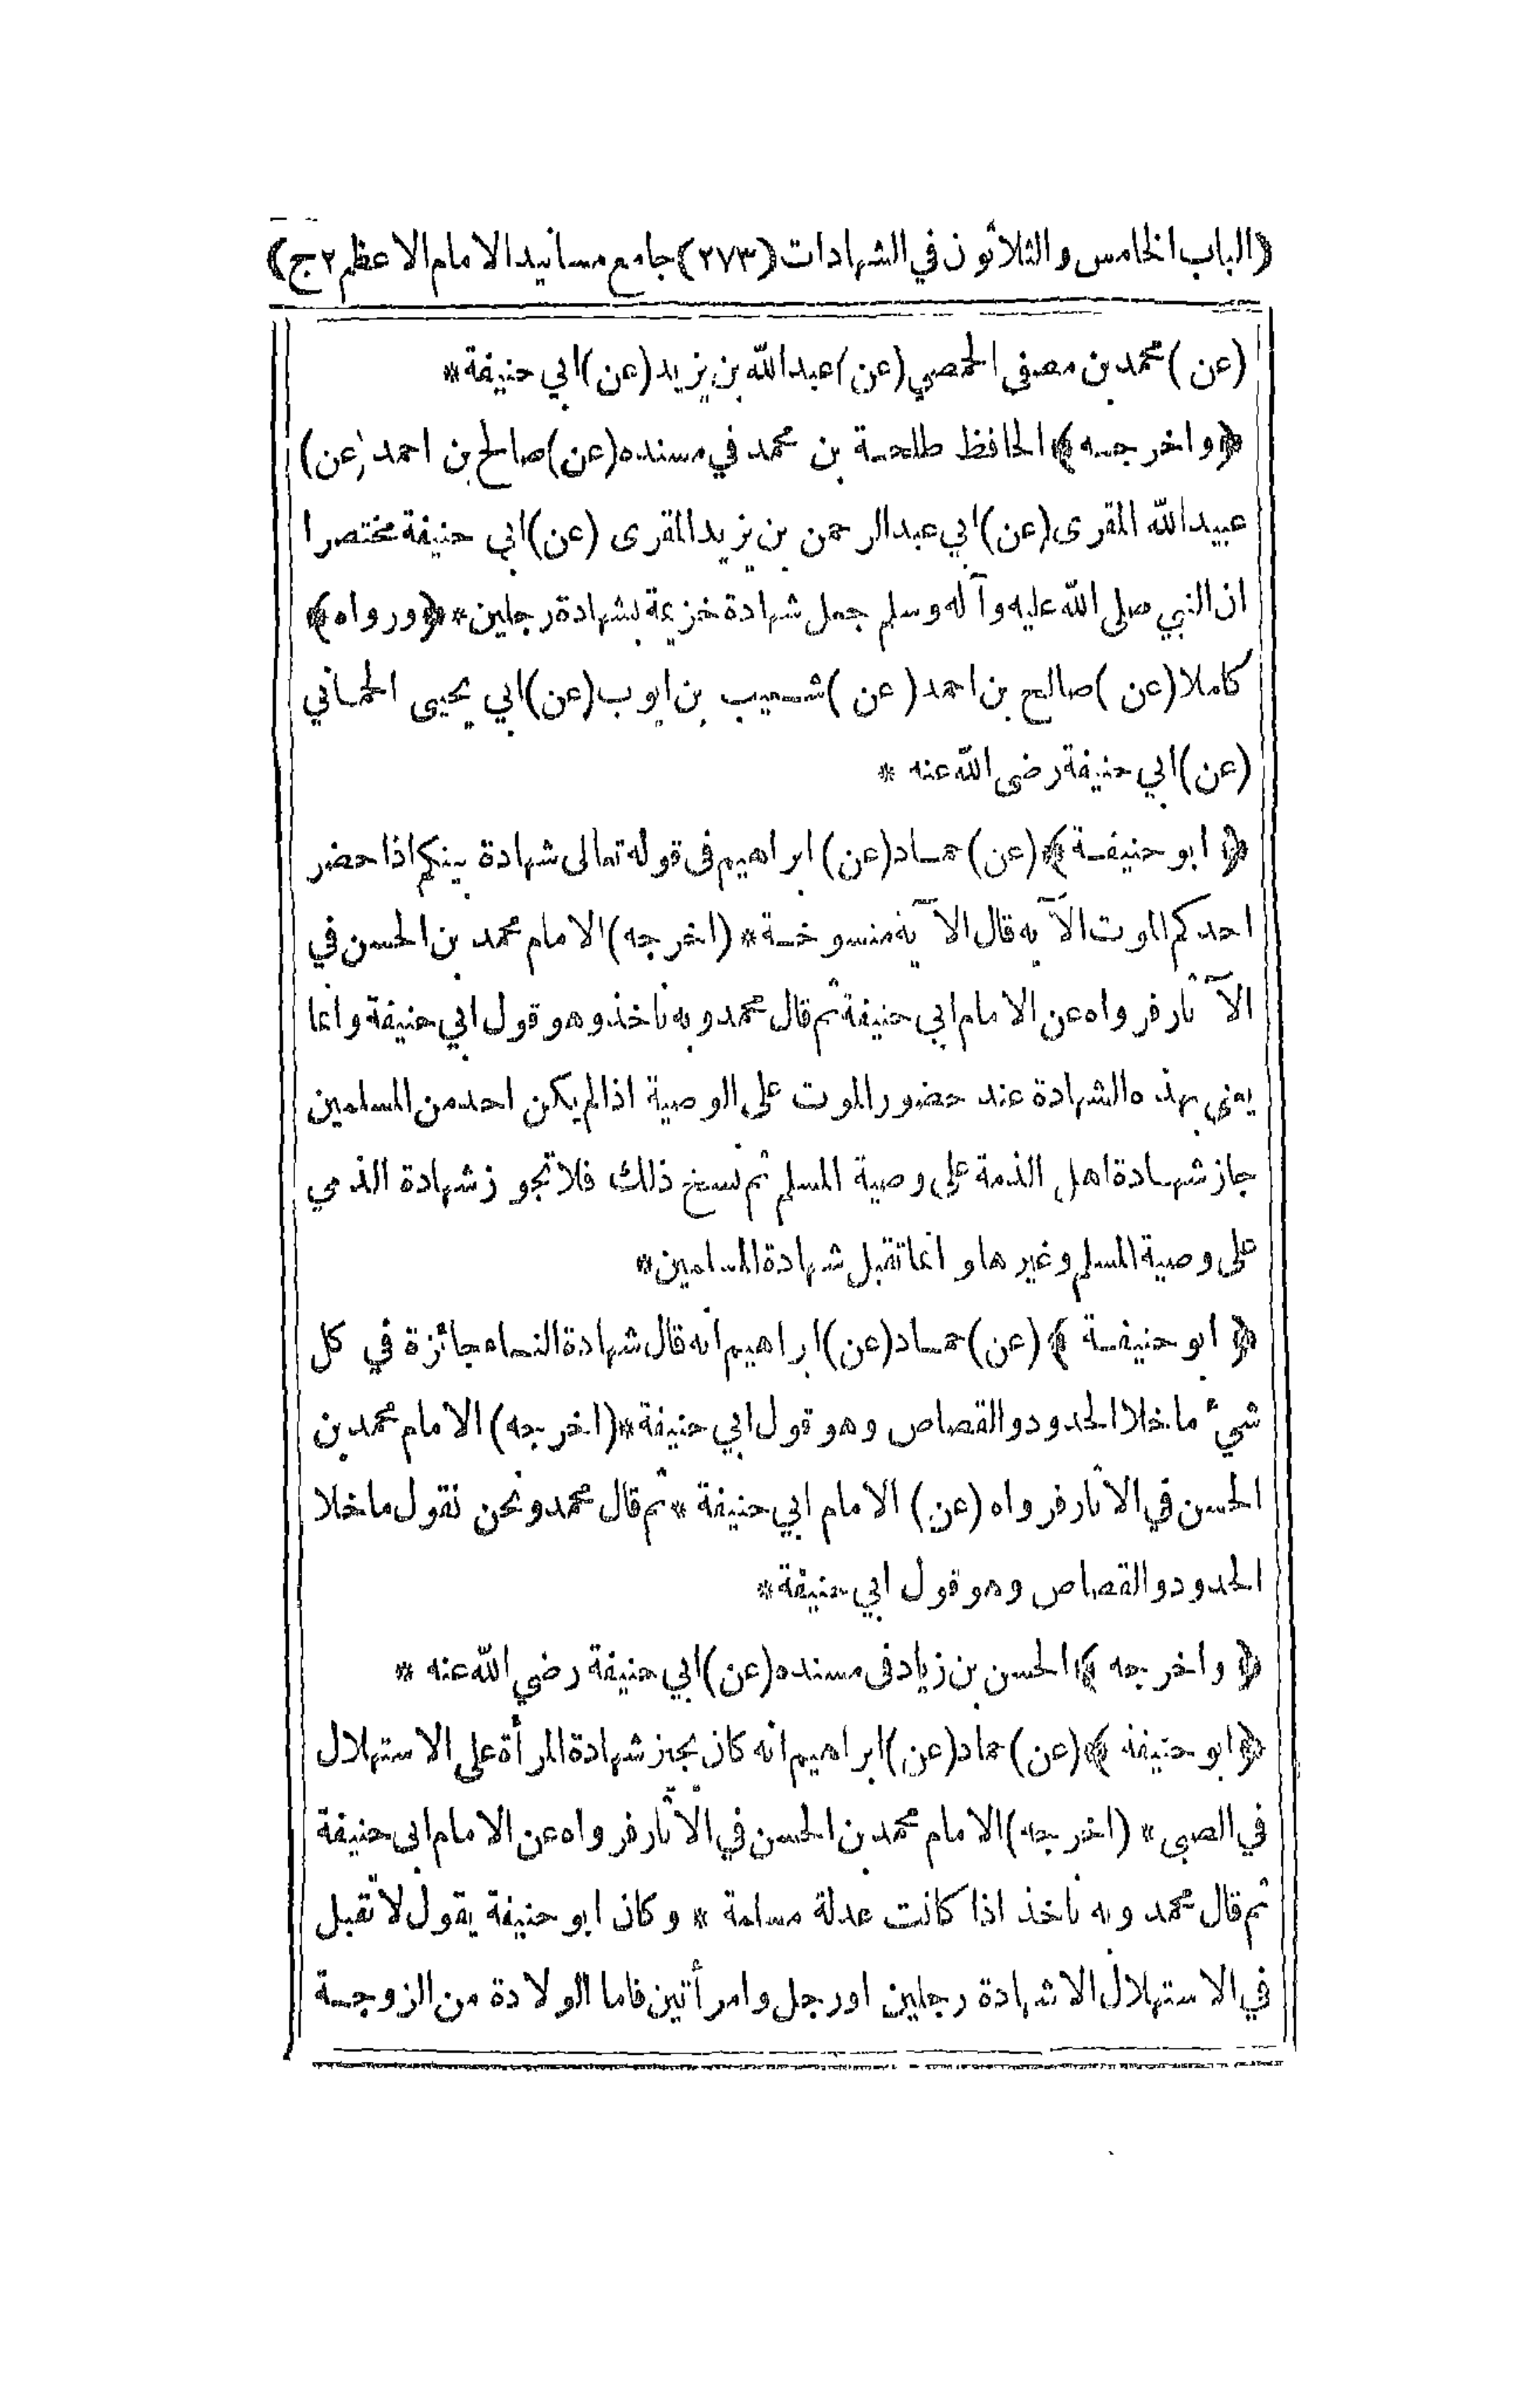 (الباب الخامس والثلاثون في الشهادات (٢٧٣) جامع مسانيد الامام الاعظم ٢ج)
(عن) محمد بن مصفى الحمصي (عن) عبد الله بن يزيد (عن) ابي حنيفة *
﴿واخرجه﴾ الحافظ طلحة بن محمد في مسنده (عن) صالح بن احمد (عن)
عبيد الله المقرى (عن) ابي عبد الرحمن بن يزيد المقرى (عن) ابي حنيفة مختصرا
ان النبي صلى الله عليه وآله وسلم جعل شهادة خزيمة بشهادة رجلين * ﴿ورواه﴾
كاملا (عن) صالح بن احمد (عن) شعيب بن ايوب (عن) ابي يحيى الحماني
(عن) ابي حنيفة رضى الله عنه *
﴿ابو حنيفة﴾ (عن) حماد (عن) ابراهيم فى قوله تعالى شهادة بينكم اذا حضر
احدكم الموت الآيه قال الآية منسوخة * (اخرجه) الامام محمد بن الحسن في
الآثار فرواه عن الامام ابي حنيفة ثم قال محمد وبه ناخذ وهو قول ابي حنيفة وانما
يعني بهذه الشهادة عند حضور الموت على الوصية اذا لم يكن احد من المسلمين
جاز شهادة اهل الذمة على وصية المسلم ثم نسخ ذلك فلا تجوز شهادة الذمي
على وصية المسلم وغيرها وانما تقبل شهادة المسلمين *
﴿ابو حنيفة﴾ (عن) حماد (عن) ابراهيم انه قال شهادة النساء جائزة في كل
شيء ما خلا الحدود والقصاص وهو قول ابي حنيفة * (اخرجه) الامام محمد بن
الحسن في الاثار فرواه (عن) الامام ابي حنيفة * ثم قال محمد ونحن نقول ما خلا
الحدود والقصاص وهو قول ابي حنيفة *
﴿واخرجه﴾ الحسن بن زياد فى مسنده (عن) ابي حنيفة رضي الله عنه *
﴿ابو حنيفة﴾ (عن) حماد (عن) ابراهيم انه كان يجيز شهادة المرأة على الاستهلال
في الصبى * (اخرجه) الامام محمد بن الحسن في الآثار فرواه عن الامام ابى حنيفة
ثم قال محمد وبه ناخذ اذا كانت عدلة مسلمة * وكان ابو حنيفة يقول لا تقبل
في الاستهلال الا شهادة رجلين او رجل وامرأتين فاما الولادة من الزوجة